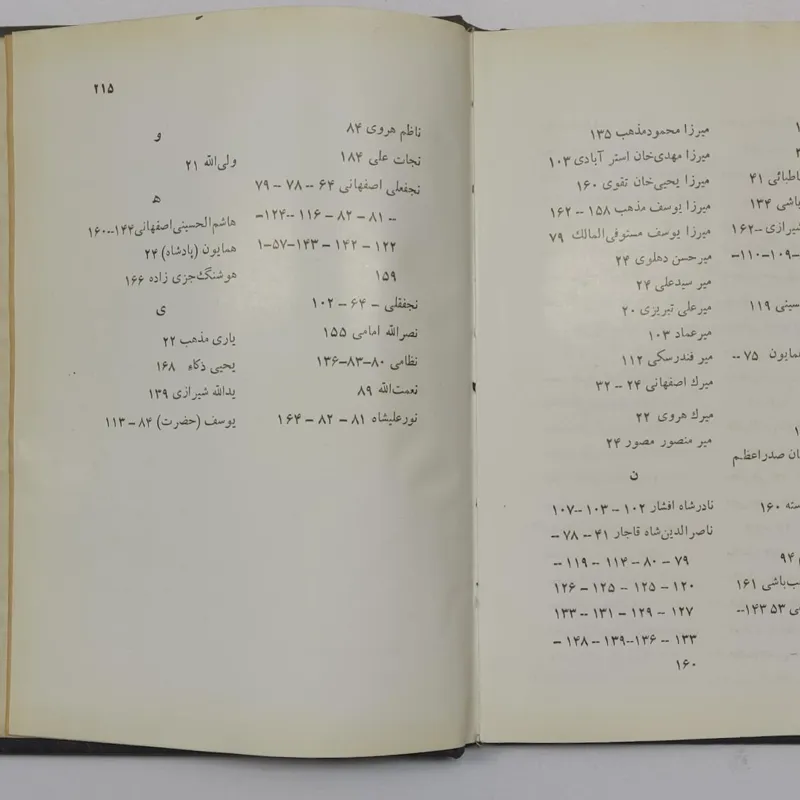 باشی ۱۳۴
شیرازی --۱۶۲
--۱۰۹--۱۱۰--
سینی ۱۱۹
همایون ۷۵ --
صدراعظم
۱۶۰
۹۴
باشی ۱۶۱
۵۳ ۱۴۳--
میرزا محمودمذهب ۱۳۵
میرزا مهدی‌خان استر آبادی ۱۰۳
میرزا یحیی‌خان تقوی ۱۶۰
میرزا یوسف مذهب ۱۵۸ -- ۱۶۲
میرزا یوسف مستوفی‌الممالک ۷۹
میرحسن دهلوی ۲۴
میر سیدعلی ۲۴
میرعلی تبریزی ۲۰
میرعماد ۱۰۳
میر فندرسکی ۱۱۲
میرك اصفهانی ۲۴ -- ۳۲
میرك هروی ۲۲
میر منصور مصور ۲۴
ن
نادرشاه افشار ۱۰۲ -- ۱۰۳ --۱۰۷
ناصرالدین‌شاه قاجار ۴۱ -- ۷۸ --
۷۹ – ۸۰ -- ۱۱۴ -- ۱۱۹ --
۱۲۰ -- ۱۲۵ -- ۱۲۵ – ۱۲۶
۱۲۷ -- ۱۲۹ -- ۱۳۱ -- ۱۳۳
۱۳۳ -- ۱۳۶--۱۳۹ -- ۱۴۸ –
۱۶۰
۲۱۵
ناظم هروی ۸۴
نجات علی ۱۸۴
نجفعلی اصفهانی ۶۴ -- ۷۸ – ۷۹
-- ۸۱ – ۸۲ – ۱۱۶ --۱۲۴–
۱۲۲ – ۱۴۲ – ۱۴۳–۵۷–۱
۱۵۹
نجفقلی – ۶۴ – ۱۰۲
نصرالله امامی ۱۵۵
نظامی ۸۰–۸۳–۱۳۶
نعمت‌الله ۸۹
نورعلیشاه ۸۱ – ۸۲ – ۱۶۴
و
ولی‌الله ۲۱
ه
هاشم‌الحسینی‌اصفهانی۱۴۴--۱۶۰
همایون (پادشاه) ۲۴
هوشنگ‌جزی زاده ۱۶۶
ی
یاری مذهب ۲۲
یحیی ذکاء ۱۶۸
یدالله شیرازی ۱۳۹
یوسف (حضرت) ۸۴ – ۱۱۳